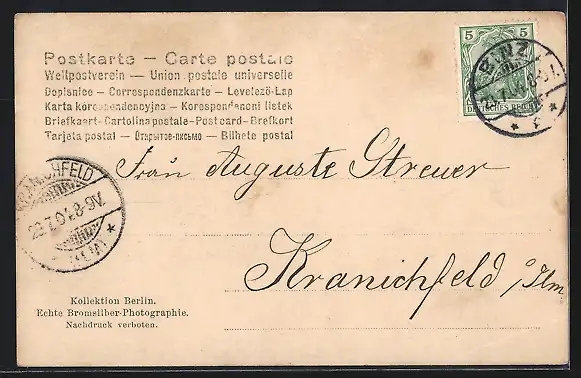 Postkarte – Carte postale
Weltpostverein – Union postale universelle
Dopisnice – Correspondenzkarte – Levelező-Lap
Karta korespondencyjna – Korespondencni listek
Briefkaart–Cartolina postale–Postcard–Brefkort
Tarjeta postal – Открытое письмо – Bilhete postal
5 5
DEUTSCHES REICH
BINZ
KRANICHFELD
8-9V.
Frau Auguste Streuer
Kranichfeld a/Ilm.
Kollektion Berlin.
Echte Bromsilber-Photographie.
Nachdruck verboten.